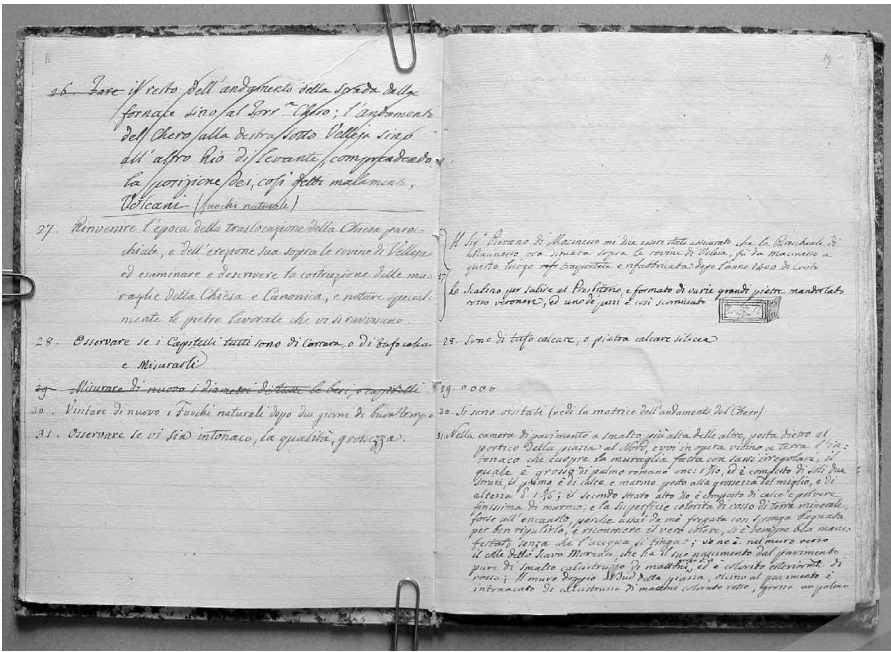 26. Fare il resto dell'andamento della strada dalla
fornace sino al Torr.e Chero; l'andamento
del Chero alla destra sotto Velleja sino
all'altro Rio di Levante, comprendendo
la posizione dei, così detti malamente,
Volcani (fuochi naturali)
27. Rinvenire l'epoca della traslocazione della Chiesa paroc-
chiale, e dell'erezione sua sopra le rovine di Velleja
ed esaminare e descrivere la costruzione delle mu-
raglie della Chiesa e Canonica, e notare special-
mente le pietre lavorate che vi si ravvisano.
28. Osservare se i Capitelli tutti sono di Carrara, o di tufo calca
e Misurarli
29 Misurare di nuovo i diametri di tutte le basi, e capitelli
30. Visitare di nuovo i Fuochi naturali dopo due giorni di buon tempo
31. Osservare se vi sia intonaco, la qualità, grossezza.
19
27
Il Sig.r Pievano di Macinesso mi dice essere stato assicurato che la Parochiale di
Macinesso, ora situata sopra le rovine di Veleia, fu da macinesso a
questo luogo trasportata e rifabbricata dopo l'anno 1400 di Cristo
Lo Scalino per salire al Presbiterio, è formato di varie grandi pietre mandorlato
rosso veronese, ed uno di essi è così scorniciato
28. Sono di tufo calcare, o pietra calcare silicea
29 0000
30. Si sono visitati (vedi la matrice dell'andamento del Chero)
31. Nella camera di pavimento a smalto più alta delle altre, posta dietro al
portico della piazza al Nord, evvi in opera vicino a terra l'in-
tonaco che cuopre la muraglia fatta con sassi irregolari, il
quale è grosso di palmo romano onc: 1 7/10, ed è composto di soli due
strati, il primo è di calce e marmo pesto alla grossezza del miglio, e di
altezza il secondo strato alto è composto di calce e polvere
finissima di marmo; e la superficie colorita di rosso di terra minerale,
forse all'encausto, perchè assai da me fregata con sponga bagnata
per ben ripulirlo, e riconoscere il vero colore, si è sempre ben mani-
festato senza che l'acqua si tinga; se ne è nel muro verso
il colle dello scavo Moreau, che ha il suo nascimento dal pavimento
pure di smalto calcistruzzo di mattoni, ed è colorito esteriorm.te di
rosso; Il muro doppio al Sud della piazza, vicino al pavimento è
intonacato di calcistruzzo di mattoni colorato rosso, grosso un palmo